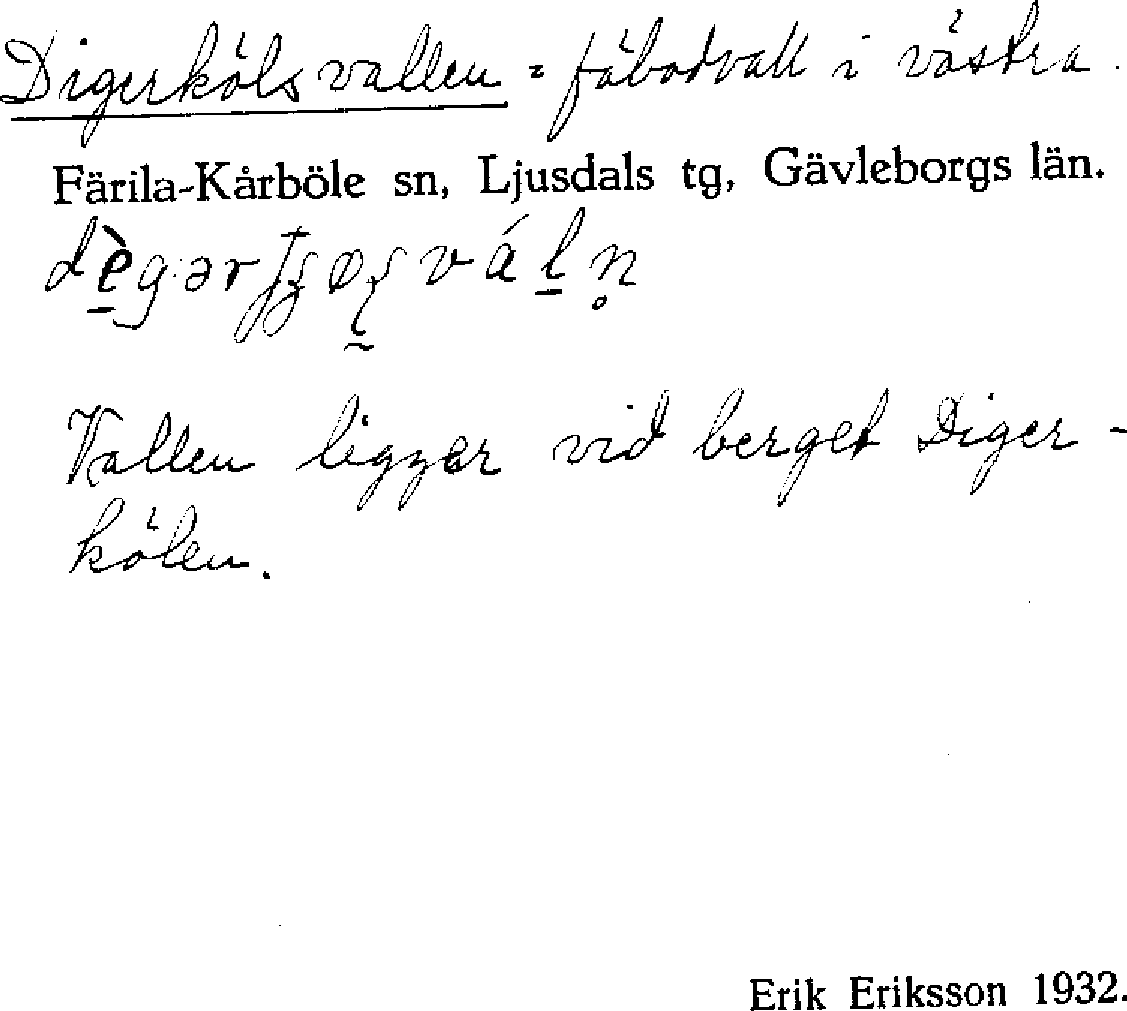 Digerkölsvallen = fäbodvall i västra
Färila-Kårböle sn, Ljusdals tg, Gävleborgs län.
Vallen ligger vid berget Diger-
kölen.
Erik Eriksson 1932.